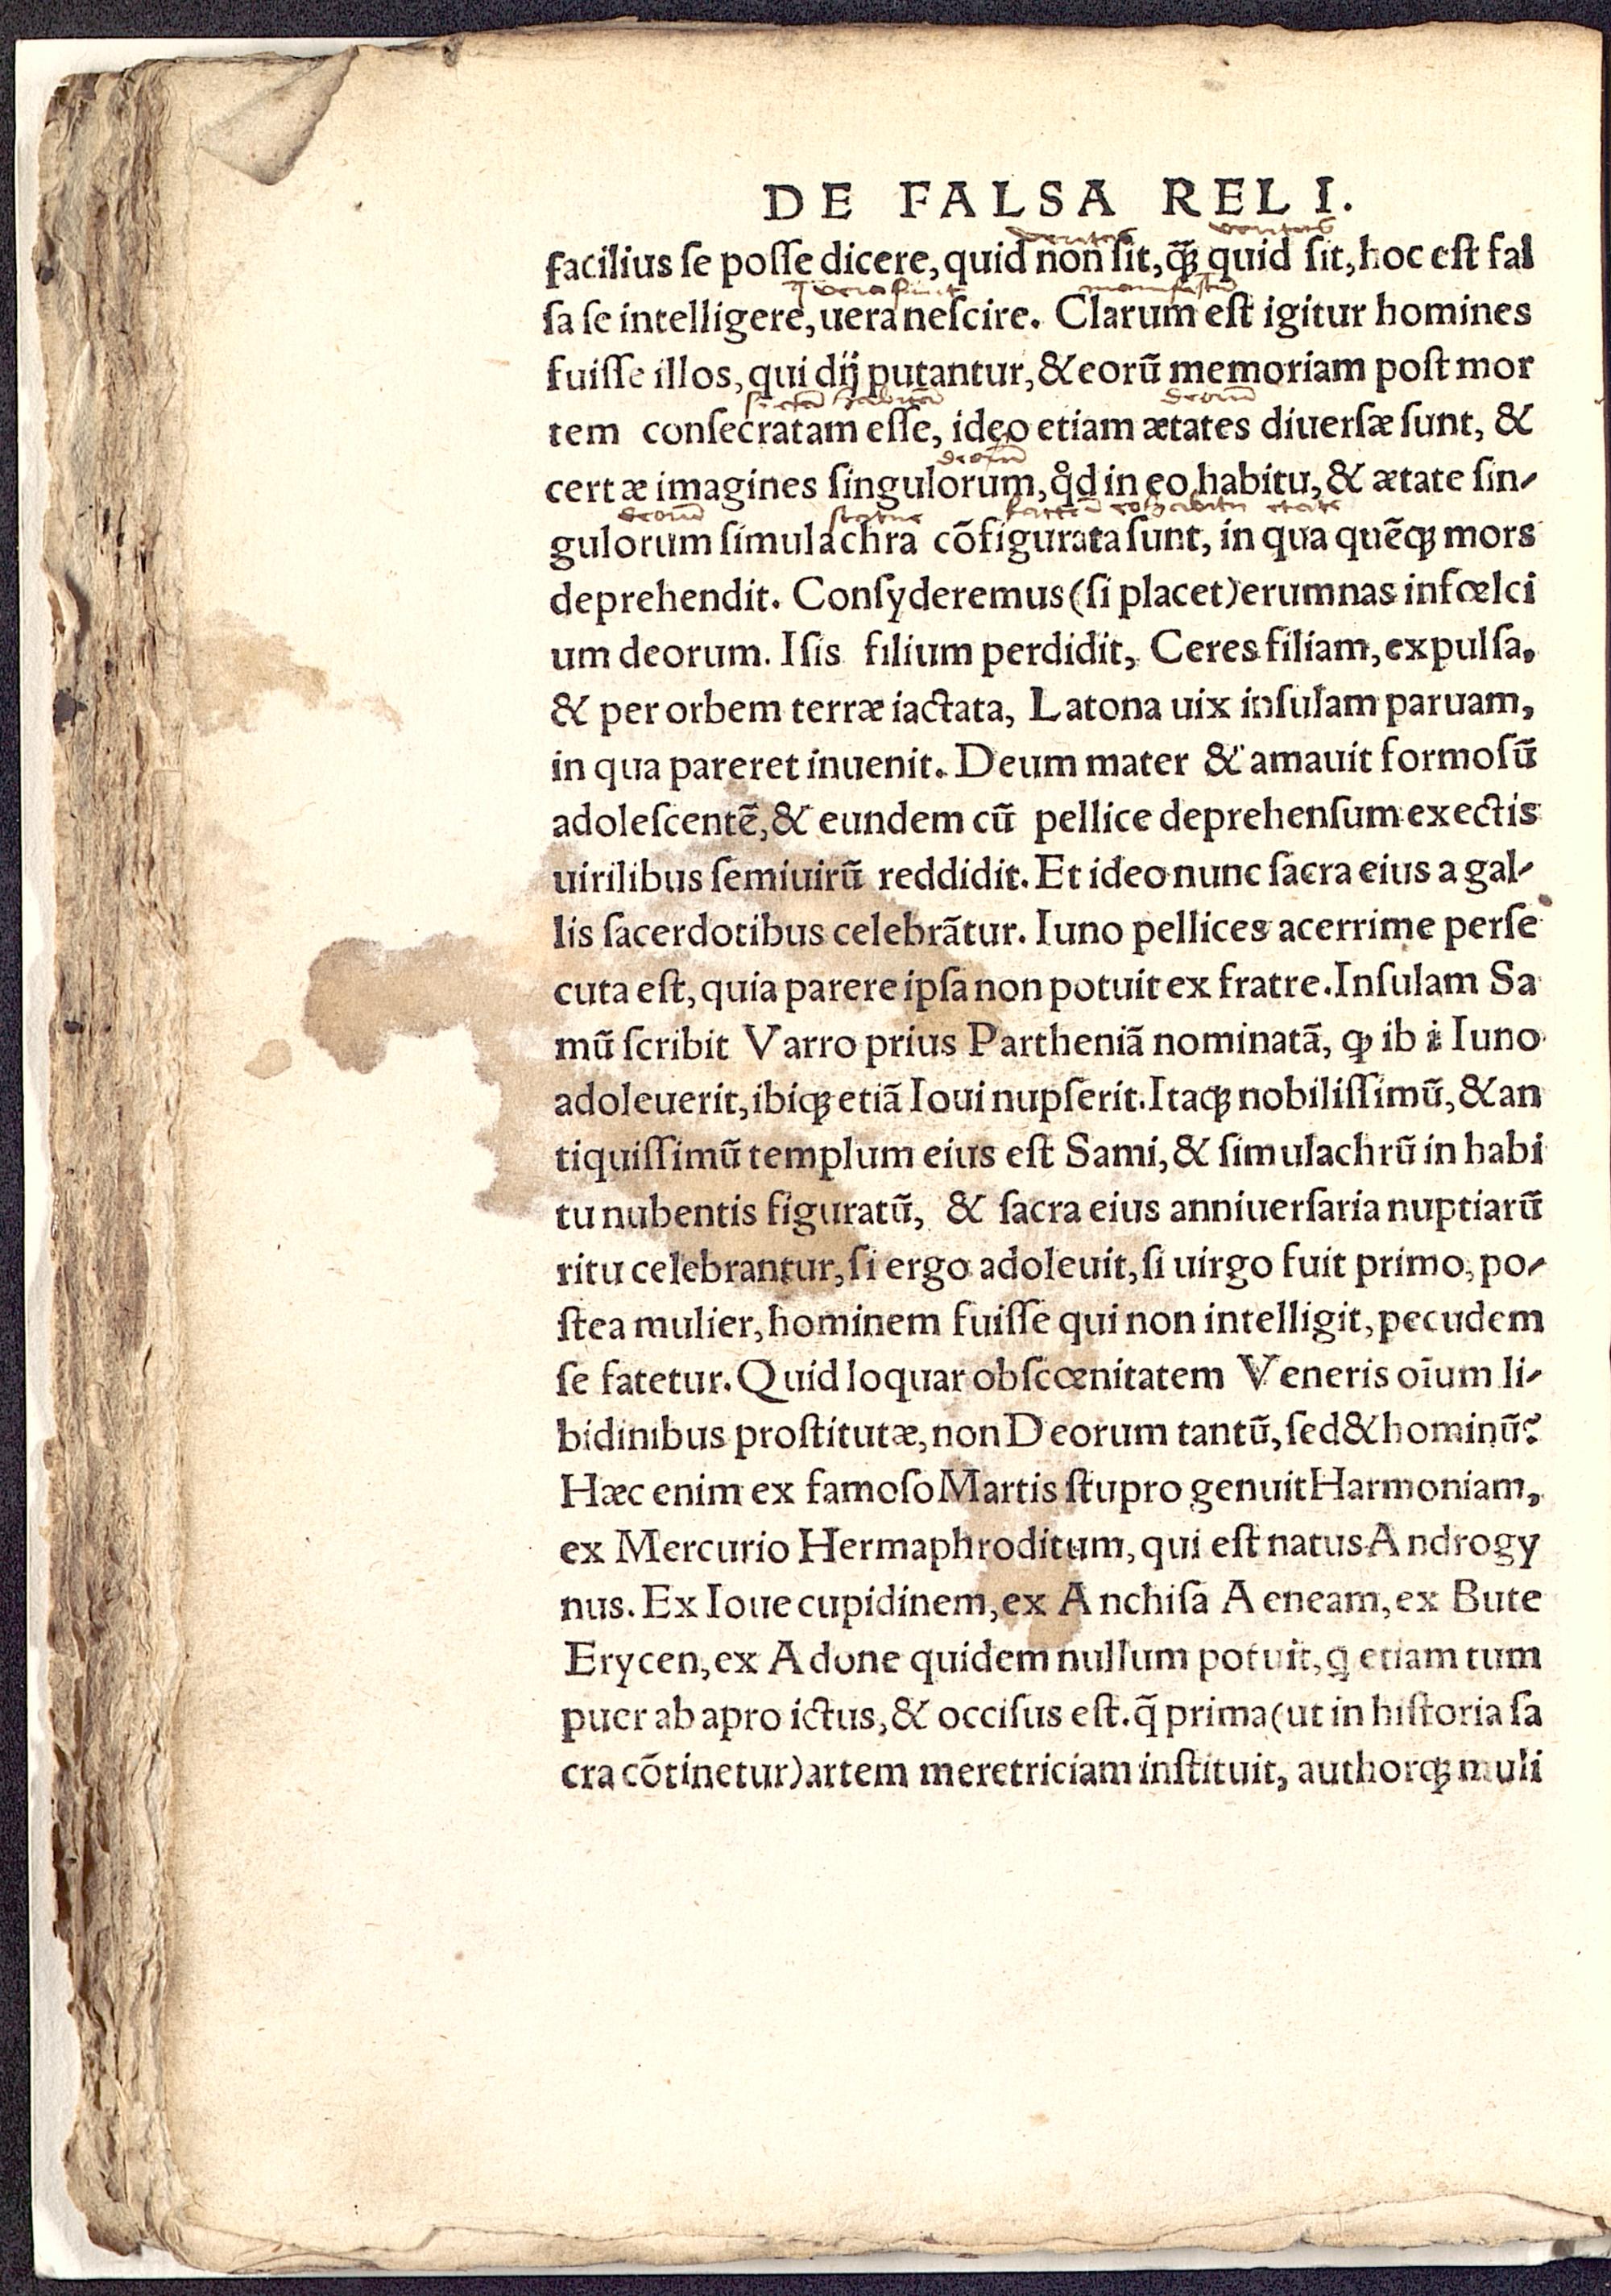 DE FALSA RELI.
ueritas ueritas
facilius se posse dicere, quid non sit, q̃ꝫ quid sit, hoc est fal
manifestũ
sa se intelligere, uera nescire. Clarum est igitur homines
fuisse illos, qui dij putantur, & eorũ memoriam post mor
deorũ
tem consecratam esse, ideo etiam ætates diuersæ sunt, &
deorũ
certæ imagines singulorum, qđ in eo habitu, & ætate sin-
deorũ statue
gulorum simulachra cõfigurata sunt, in qua quẽqꝫ mors
deprehendit. Consyderemus (si placet) erumnas infœlci
um deorum. Isis filium perdidit, Ceres filiam, expulsa,
& per orbem terræ iactata, Latona uix insulam paruam,
in qua pareret inuenit. Deum mater & amauit formosũ
adolescentẽ, & eundem cũ pellice deprehensum exectis
uirilibus semiuirũ reddidit. Et ideo nunc sacra eius a gal-
lis sacerdotibus celebrãtur. Iuno pellices acerrime perse
cuta est, quia parere ipsa non potuit ex fratre. Insulam Sa
mũ scribit Varro prius Partheniã nominatã, ꝙ ibi Iuno
adoleuerit, ibiqꝫ etiã Ioui nupserit. Itaqꝫ nobilissimũ, & an
tiquissimũ templum eius est Sami, & simulachrũ in habi
tu nubentis figuratũ, & sacra eius anniuersaria nuptiarũ
ritu celebrantur, si ergo adoleuit, si uirgo fuit primo, po-
stea mulier, hominem fuisse qui non intelligit, pecudem
se fatetur. Quid loquar obscœnitatem Veneris oĩum li-
bidinibus prostitutæ, non Deorum tantũ, sed & hominũ?
Hæc enim ex famoso Martis stupro genuit Harmoniam,
ex Mercurio Hermaphroditum, qui est natus Androgy
nus. Ex Ioue cupidinem, ex Anchisa Aeneam, ex Bute
Erycen, ex Adone quidem nullum potuit, q etiam tum
puer ab apro ictus, & occisus est. q̃ prima (ut in historia sa
cra cõtinetur) artem meretriciam instituit, authorqꝫ muli